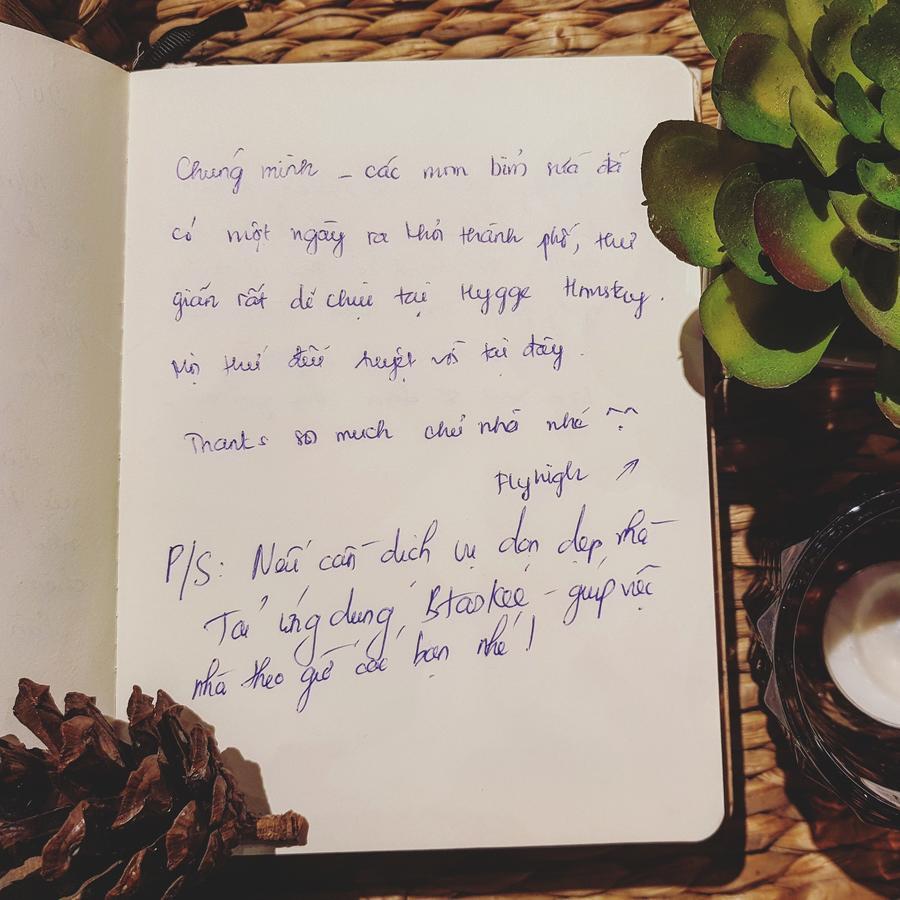 Chúng mình - các mom bỉm sữa đã
có một ngày ra khỏi thành phố, thư
giãn rất dễ chịu tại Hygge Homstay.
Mọi thứ đều tuyệt vời tại đây.
Thanks so much chủ nhà nhé ^^
Flyhigh ↗
P/S: Nếu cần dịch vụ dọn dẹp nhà
Tải ứng dụng Btaskee - giúp việc
nhà theo giờ các bạn nhé!